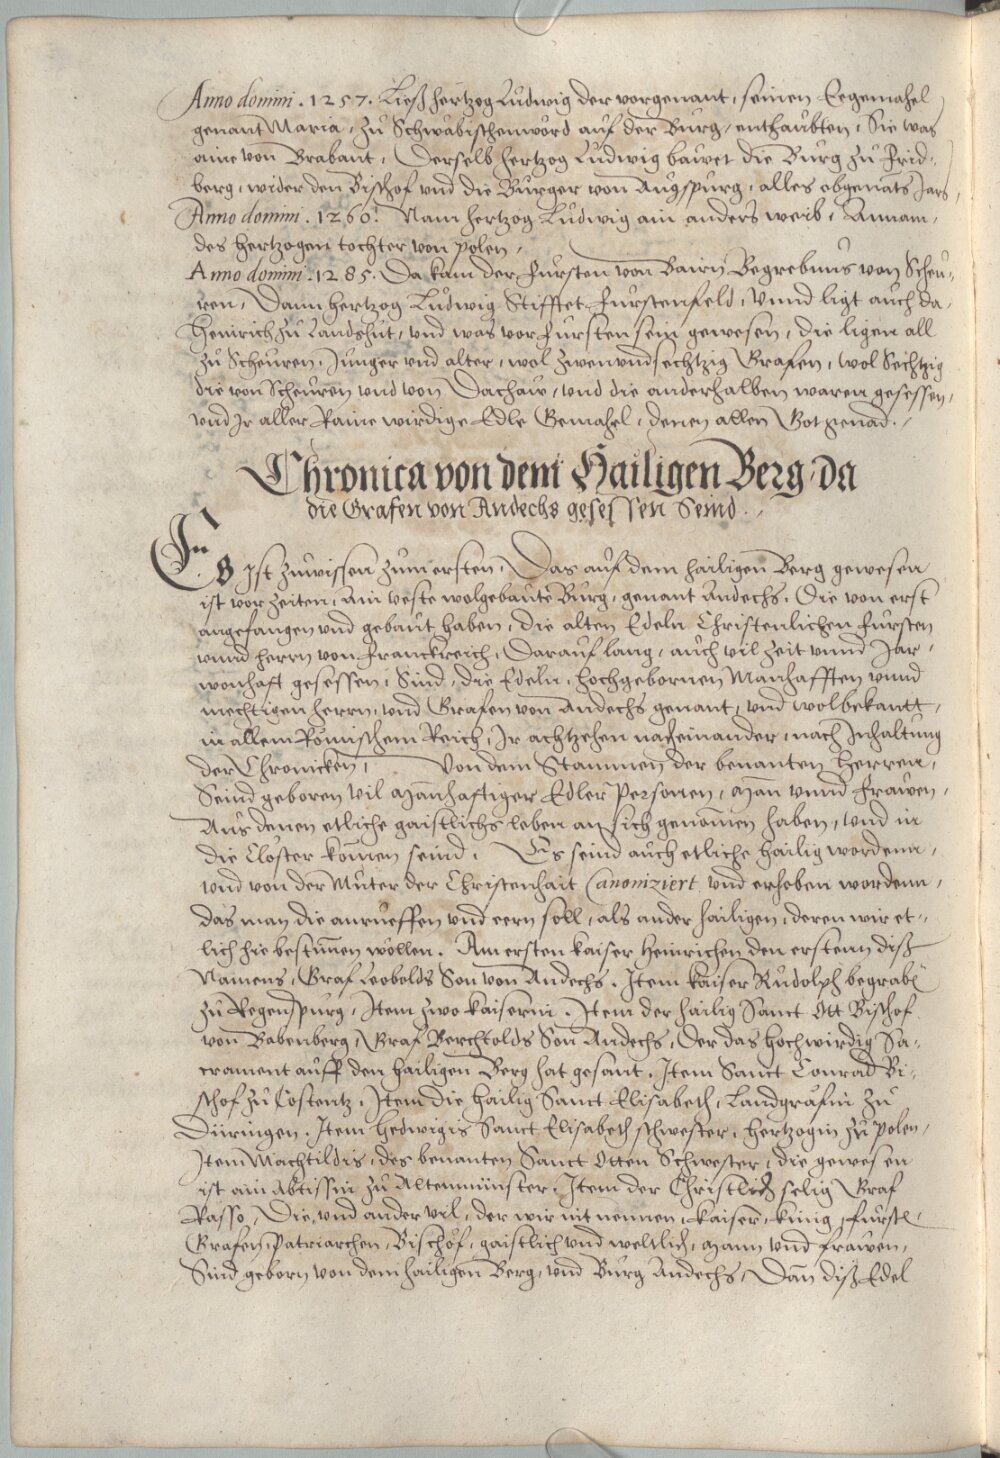 Anno domini . 1257. Ließ hertzog Ludwig der vorgenant, seinen Eegemahel
genant Maria, zu Schwäbischenwörd auf der Burg, enthaubten, Sie was
aine von Brabant, Derselb hertzog Ludwig bawet die Burg zu Frid-
berg, wider den Bischof vnd die Burger von Augspurg, alles obgenants Jars,
Anno domini . 1260. Nam hertzog Ludwig ain anders weib, Annam,
des hertzogen tochter von polen,
Anno domini . 1285. Da kam der fürsten von Bairn Begrebnus von Scheu-
ren, Dann hertzog Ludwig Stifftet fürstenfeld, Vnnd ligt auch da,
Heinrich zu Landshut, vnd was vor fürsten sein gewesen, die ligen all
zu Scheuren, Junger vnd alter, wol zwenvndsechtzig Grafen, wol Sechtzig
die von Scheuren vnd von Dachaw, vnd die anderhalben waren gesessen,
vnd Jr aller Raine wirdige Edle Gemahel, denen allen Got genad.
Chronica von dem Hailigen Berg, da
die Grafen von Andechs gesessen Seind.
Es Jst zuwissen zum ersten, Das auf dem hailigen̄ Berg gewesen
ist vor zeiten, ain veste wolgebaute Burg, genant Andechs, Die von erst
angefangen vnd gebaut haben, die alten Edeln Christenlichen fürsten
vnnd herrn von Franckreich, Darauf lang, auch vil zeit vnnd Jar,
wonhaft gesessen, Sind, die Edeln, hochgebornen Manhafften vnnd
mechtigen herrn, vnd Grafen von Andechs genant, vnd wolbekantt,
in allem Römischem Reich, Jr achtzehen nacheinander, nach Jnhaltung
der Chronicken, Von dem Stammen der benanten Herren,
Seind geboren vil man̄hafftiger Edler Personen, man̄ vnnd frawen,
Aus denen etliche gaistlichs leben an sich genom̄en haben, vnd in
die Clöster kom̄en seind. Es seind auch etliche hailig wordenn,
vnd von der Muter der Christenhait Canoniziert vnd erhoben wordenn,
das man die anrueffen vnd eern soll, als ander hailigen, deren wir et-
lich hie bestim̄en wöllen. Am ersten kaiser Heinrichen den erstenn diß
Namens, Graf Leobolds Son von Andechs. Jtem kaiser Rudolph begrabē
zu Regenspurg, Jtem zwo kaiserin. Jtem der hailig Sanct Ott Bischof
von Babenberg, Graf Berchtolds Son Andechs, Der das hochwirdig Sa-
crament auff den hailigen Berg hat gesant. Jtem Sanct Conrad Bi-
schof zu Costentz. Jtem die hailig Sanct Elisabeth, Landgräfin zu
Düringen. Jtem Hedwigis Sanct Elisabeth schwester, hertzogin zu polen,
Jtem Machtildis, des benanten Sanct Otten Schwester, die gewesen
ist ain Abtissin zu Altenmünster. Jtem der Christlich selig Graf
Rasso, Die, vnd ander vil, der wir nit nennen, kaiser, künig, fürstē,
Grafen, Patriarchen, Bischof, gaistlich vnd weltlich, mann vnd frawen,
Sind geborn von dem hailigen Berg, vnd Burg Andechs, Dan̄ diß Edel